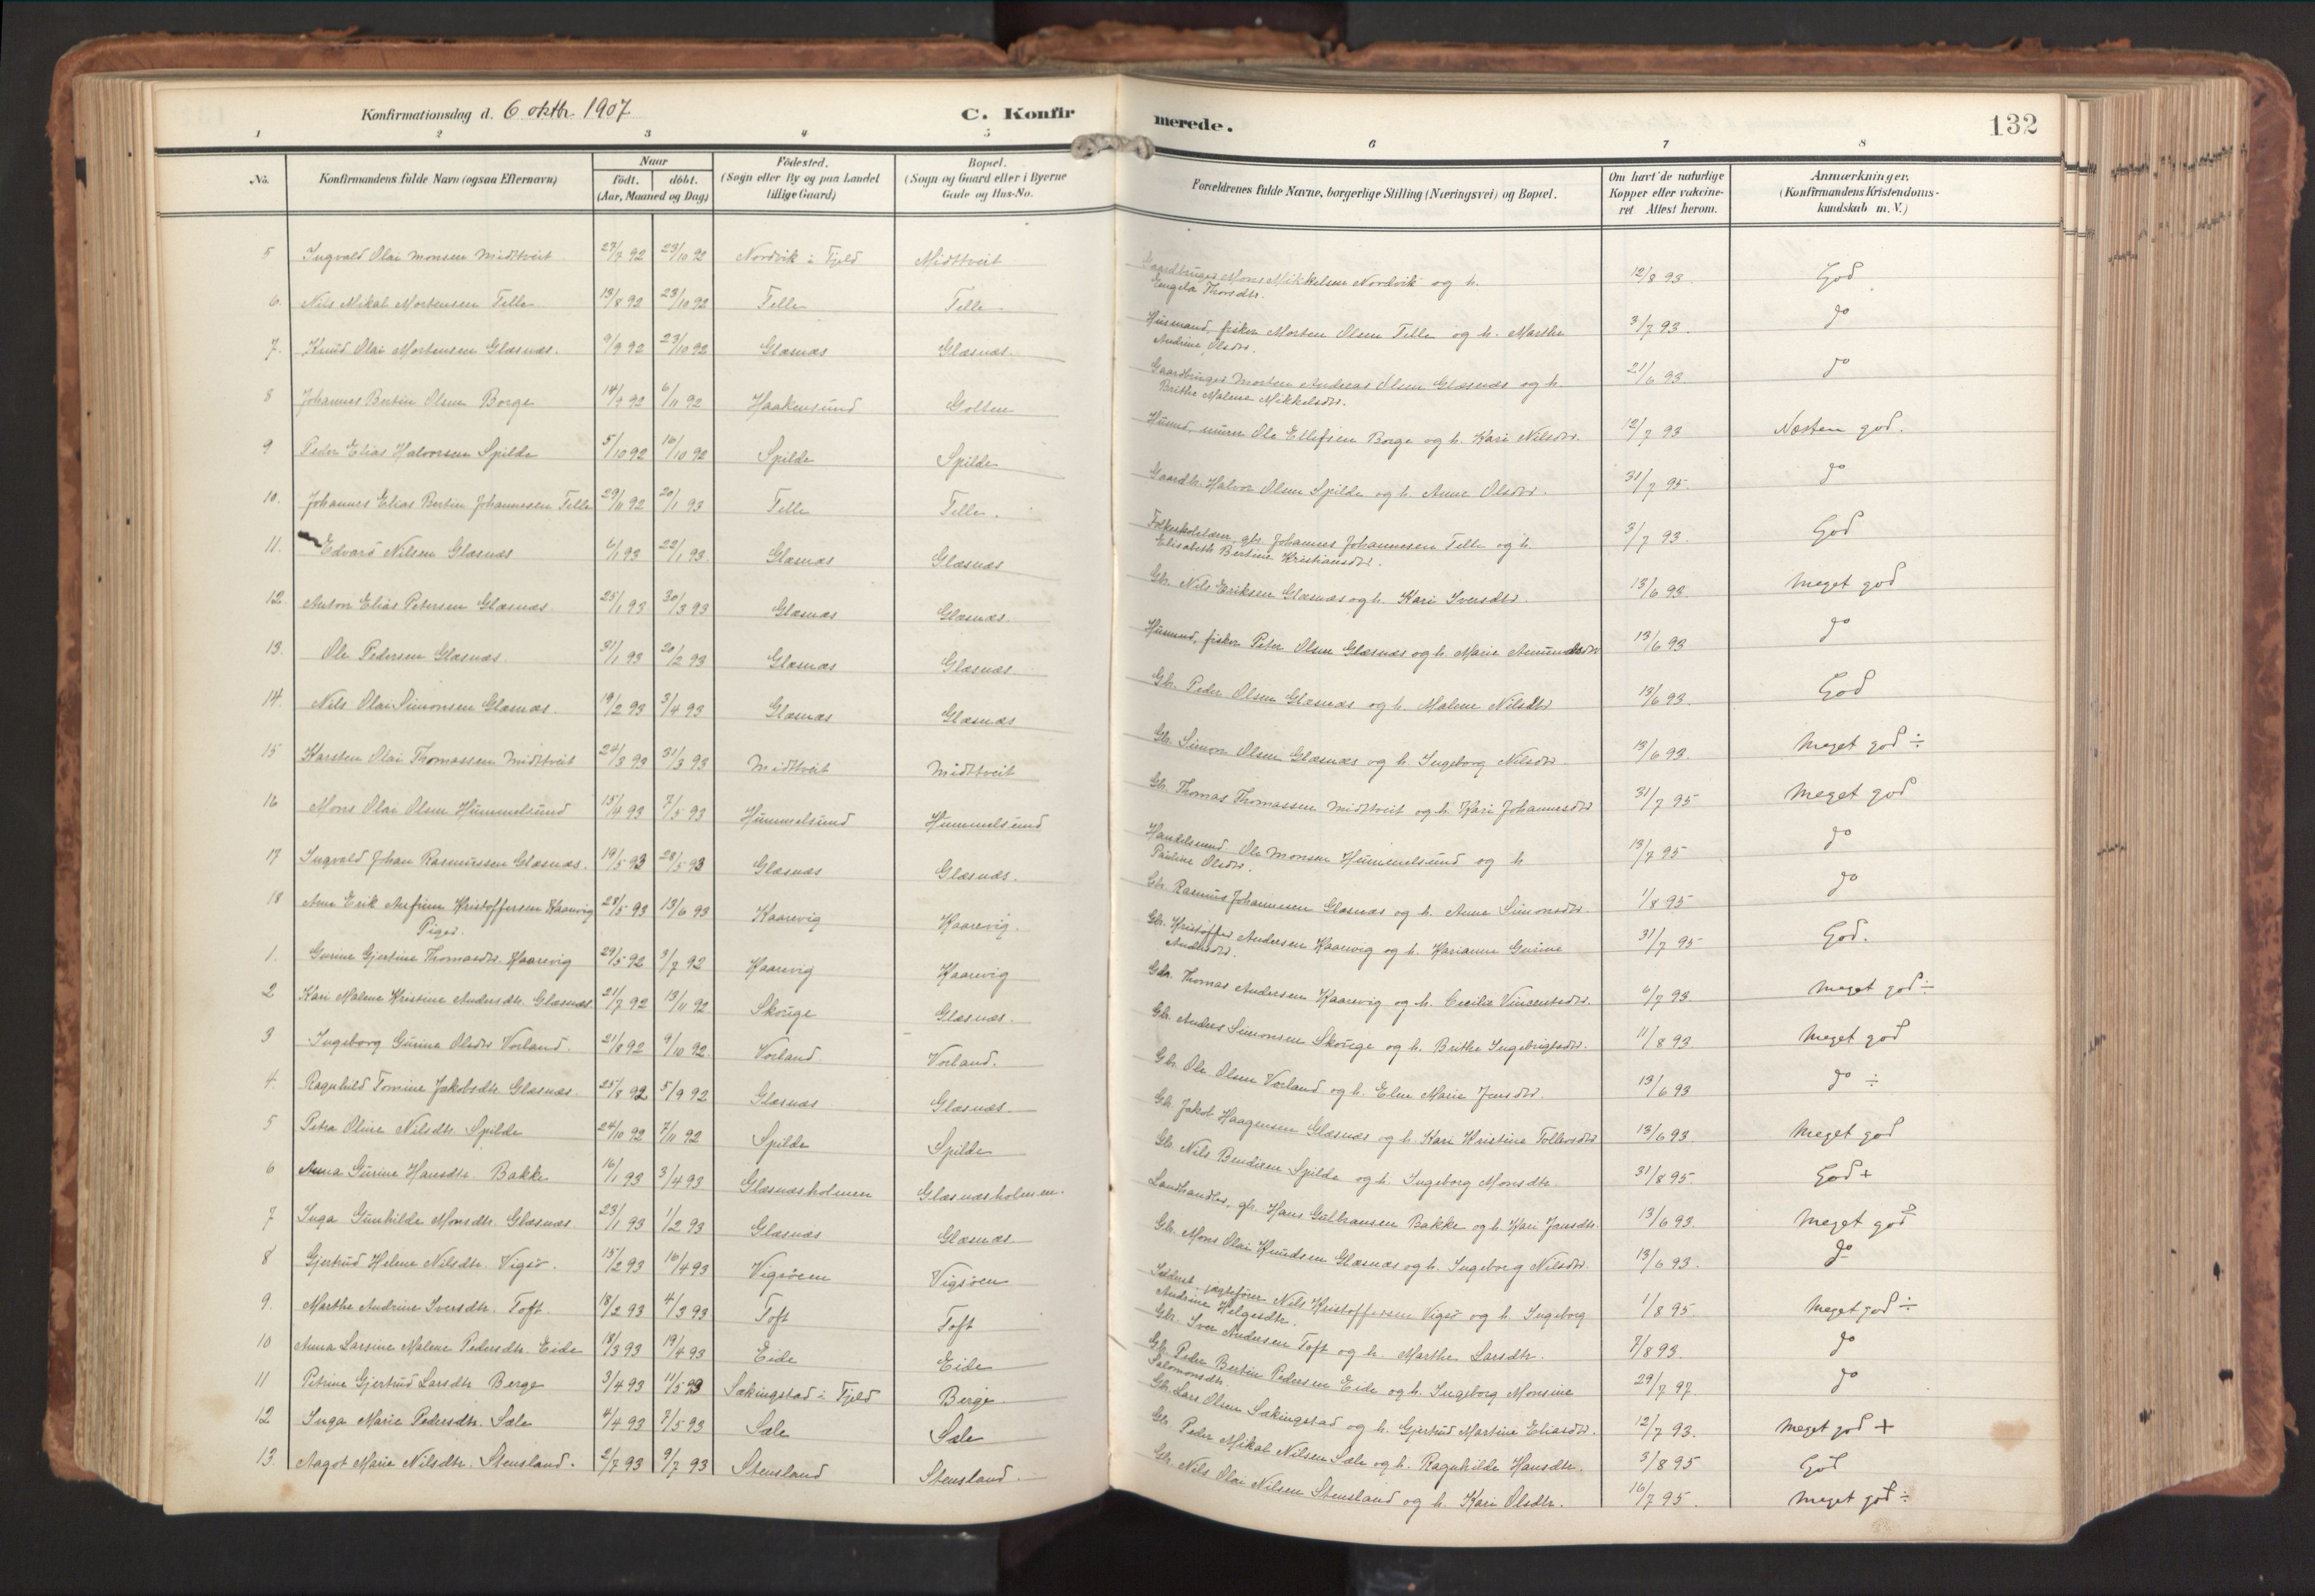 Konfirmationsdag d. 6 oktbr. 1907
C. Konfirmerede.
132
1 2 3 4 5 6 7 8
No. Konfirmandens fulde Navn (ogsaa Efternavn) Naar født. døbt. (Aar, Maaned og Dag) Fødested. (Sogn eller By og paa Landet tillige Gaard) Bopæl. (Sogn og Gaard eller i Byerne Gade og Hus-No. Forældrenes fulde Navne, borgerlige Stilling (Næringsvei) og Bopæl. Om havt de naturlige Kopper eller vakcineret Attest herom. Anmærkninger. (Konfirmandens Kristendomskundskab m. V.)
5 Ingvald Olai Monsen Midttveit 27/7 92 23/10 92 Nordvik i Fjeld Midttveit Gaardbruger Mons Mikkelsen Nordvik og h. Engela Thorsdtr. 12/8 93 God
6. Nils Mikal Mortensen Telle 13/8 92 23/10 92 Telle Telle Husmand, fisker Morten Olsen Telle og h. Marthe Andrine Olsdtr. 3/7 93. do
7. Knud Olai Mortensen Glæsnæs. 9/9 92 23/10 92 Glæsnæs Glæsnæs. Gaardbruger Morten Andreas Olsen Glæsnæs og h. Brithe Malene Mikkelsdtr. 21/6 93 do
8 Johannes Bertin Olsen Borge 14/9 92 6/11 92 Haakensund Golten Husmd, murer Ole Ellefsen Borge og h. Kari Nilsdtr. 12/7 93 Næsten god.
9 Peder Elias Halvorsen Spilde 5/10 92 16/10 92 Spilde Spilde Gaardb. Halvor Olsen Spilde og h. Anne Olsdtr. 31/7 95. do
10. Johannes Elias Bertin Johannesen Telle 29/11 92 20/1 93 Telle Telle. Folkeskolelærer, gbr. Johannes Johannesen Telle og h. Elisabeth Bertine Kristiansdtr. 3/7 93. God
11. Edvard Nilsen Glæsnæs 6/1 93 22/1 93. Glæsnæs Glæsnæs Gbr. Nils Eriksen Glæsnæs og h. Kari Iversdtr. 13/6 93 Meget god
12. Anton Elias Petersen Glæsnæs 25/1 93 30/3 93 Glæsnæs Glæsnæs. Husmd, fisker Peter Olsen Glæsnæs og h. Marie Amundsdtr 13/6 93 do
13. Ole Pedersen Glæsnæs. 31/1 93 20/2 93 Glæsnæs Glæsnæs. Gbr. Peder Olsen Glæsnæs og h. Malene Nilsdtr 13/6 93. God
14. Nils Olai Simonsen Glæsnæs. 19/2 93 3/4 93 Glæsnæs Glæsnæs Gb. Simon Olsen Glæsnæs og h. Ingeborg Nilsdtr 13/6 93. Meget god ÷
15 Karsten Olai Thomassen Midttveit 24/3 93 31/3 93 Midttveit Midttveit Gb. Thomas Thomassen Midttveit og h. Kari Johannesdtr 31/7 95 Meget god
16 Mons Olai Olsen Hummelsund 15/4 93 7/5 93 Hummelsund Hummelsund Handelsmd Ole Monsen Hummelsund og h Pauline Olsdtr. 13/7 95 do
17 Ingvald Johan Rasmussen Glæsnæs. 19/5 93 28/5 93 Glæsnæs Glæsnæs. Gb. Rasmus Johannesen Glæsnæs og h. Anne Simonsdtr. 1/8 95 do
18 Arne Erik Arfinn Kristoffersen Kaarevig 28/5 93 13/6 93 Kaarevig Kaarevig. Gbr. Kristoffer Andersen Kaarevig og h. Marianne Gurine Andersdtr. 31/7 95 God.
Piger.
1. Gurine Gjertine Thomasdtr. Kaarevig 29/5 92 3/7 92 Kaarevig Kaarevig Gbr. Thomas Andersen Kaarevig og h. Cecilie Vincentsdtr. 6/7 93. Meget god ÷
2 Kari Malene Kristine Andersdtr. Glæsnæs. 21/7 92 13/11 92 Skouge Glæsnæs. Gb. Anders Simonsen Skouge og h. Brithe Ingebrigtsdtr. 11/8 93 Meget god
3 Ingeborg Gurine Olsdtr Vorland. 21/8 92 9/10 92. Vorland Vorland. Gbr. Ole Olsen Vorland og h. Elen Marie Jensdtr. 13/6 93 do ÷
4. Ragnhild Tomine Jakobsdtr. Glæsnæs. 25/8 92 5/9 92 Glæsnæs Glæsnæs Gb. Jakob Haagensen Glæsnæs og h. Kari Kristine Tollevsdtr 13/6 93. Meget god
5 Petra Oline Nilsdtr. Spilde 24/10 92 7/11 92 Spilde Spilde Gb. Nils Bendixen Spilde og h. Ingeborg Monsdtr. 31/8 95 God +
6 Anna Gurine Hansdtr Bakke 16/1 93 3/4 93 Glæsnæsholmen Glæsnæsholmen. Landhandler, gb. Hans Gulhausen Bakke og h. Kari Jansdtr. 13/6 93. Meget god
7 Inga Gunhilde Monsdtr. Glæsnæs 23/1 93 1/2 93 Glæsnæs Glæsnæs Gb. Mons Olai Knudsen Glæsnæs og h. Ingeborg Nilsdtr. 13/6 93. do
8 Gjertrud Helene Nilsdtr. Vigsø. 15/2 93 16/4 93 Vigsøen Vigsøen jægtefører Nils Kristoffersen Vigsø og h. Ingeborg Andrine Helgesdtr. 1/8 95 Meget god ÷
9. Marthe Andrine Iversdtr. Toft 18/2 93 4/3 93 Toft Toft Gb. Iver Andersen Toft og h. Marthe Larsdtr. 7/8 93. do
10 Anna Larsine Malene Pedersdtr. Eide 18/3 93 19/4 93 Eide Eide Gb. Peder Bertin Pedersen Eide og h. Ingeborg Monsine Salomonsdtr. 29/7 97. do
11 Petrine Gjertrud Larsdtr Berge 3/4 93 11/5 93 Sækingstad i Fjeld Berge Gb. Lars Olsen Sækingstad og h. Gjertrud Martine Eliasdtr. 12/7 93. Meget god +
12 Inga Marie Pedersdtr. Sæle 4/4 93 7/5 93 Sæle Sæle Gb. Peder Mikal Nilsen Sæle og h. Ragnhilde Hansdtr. 3/8 95 God
13. Aagot Marie Nilsdtr. Stensland. 2/7 93 9/7 93 Stensland Stensland. Gb. Nils Olai Nilsen Stensland og h. Kari Olsdtr. 16/7 95. Meget god ÷